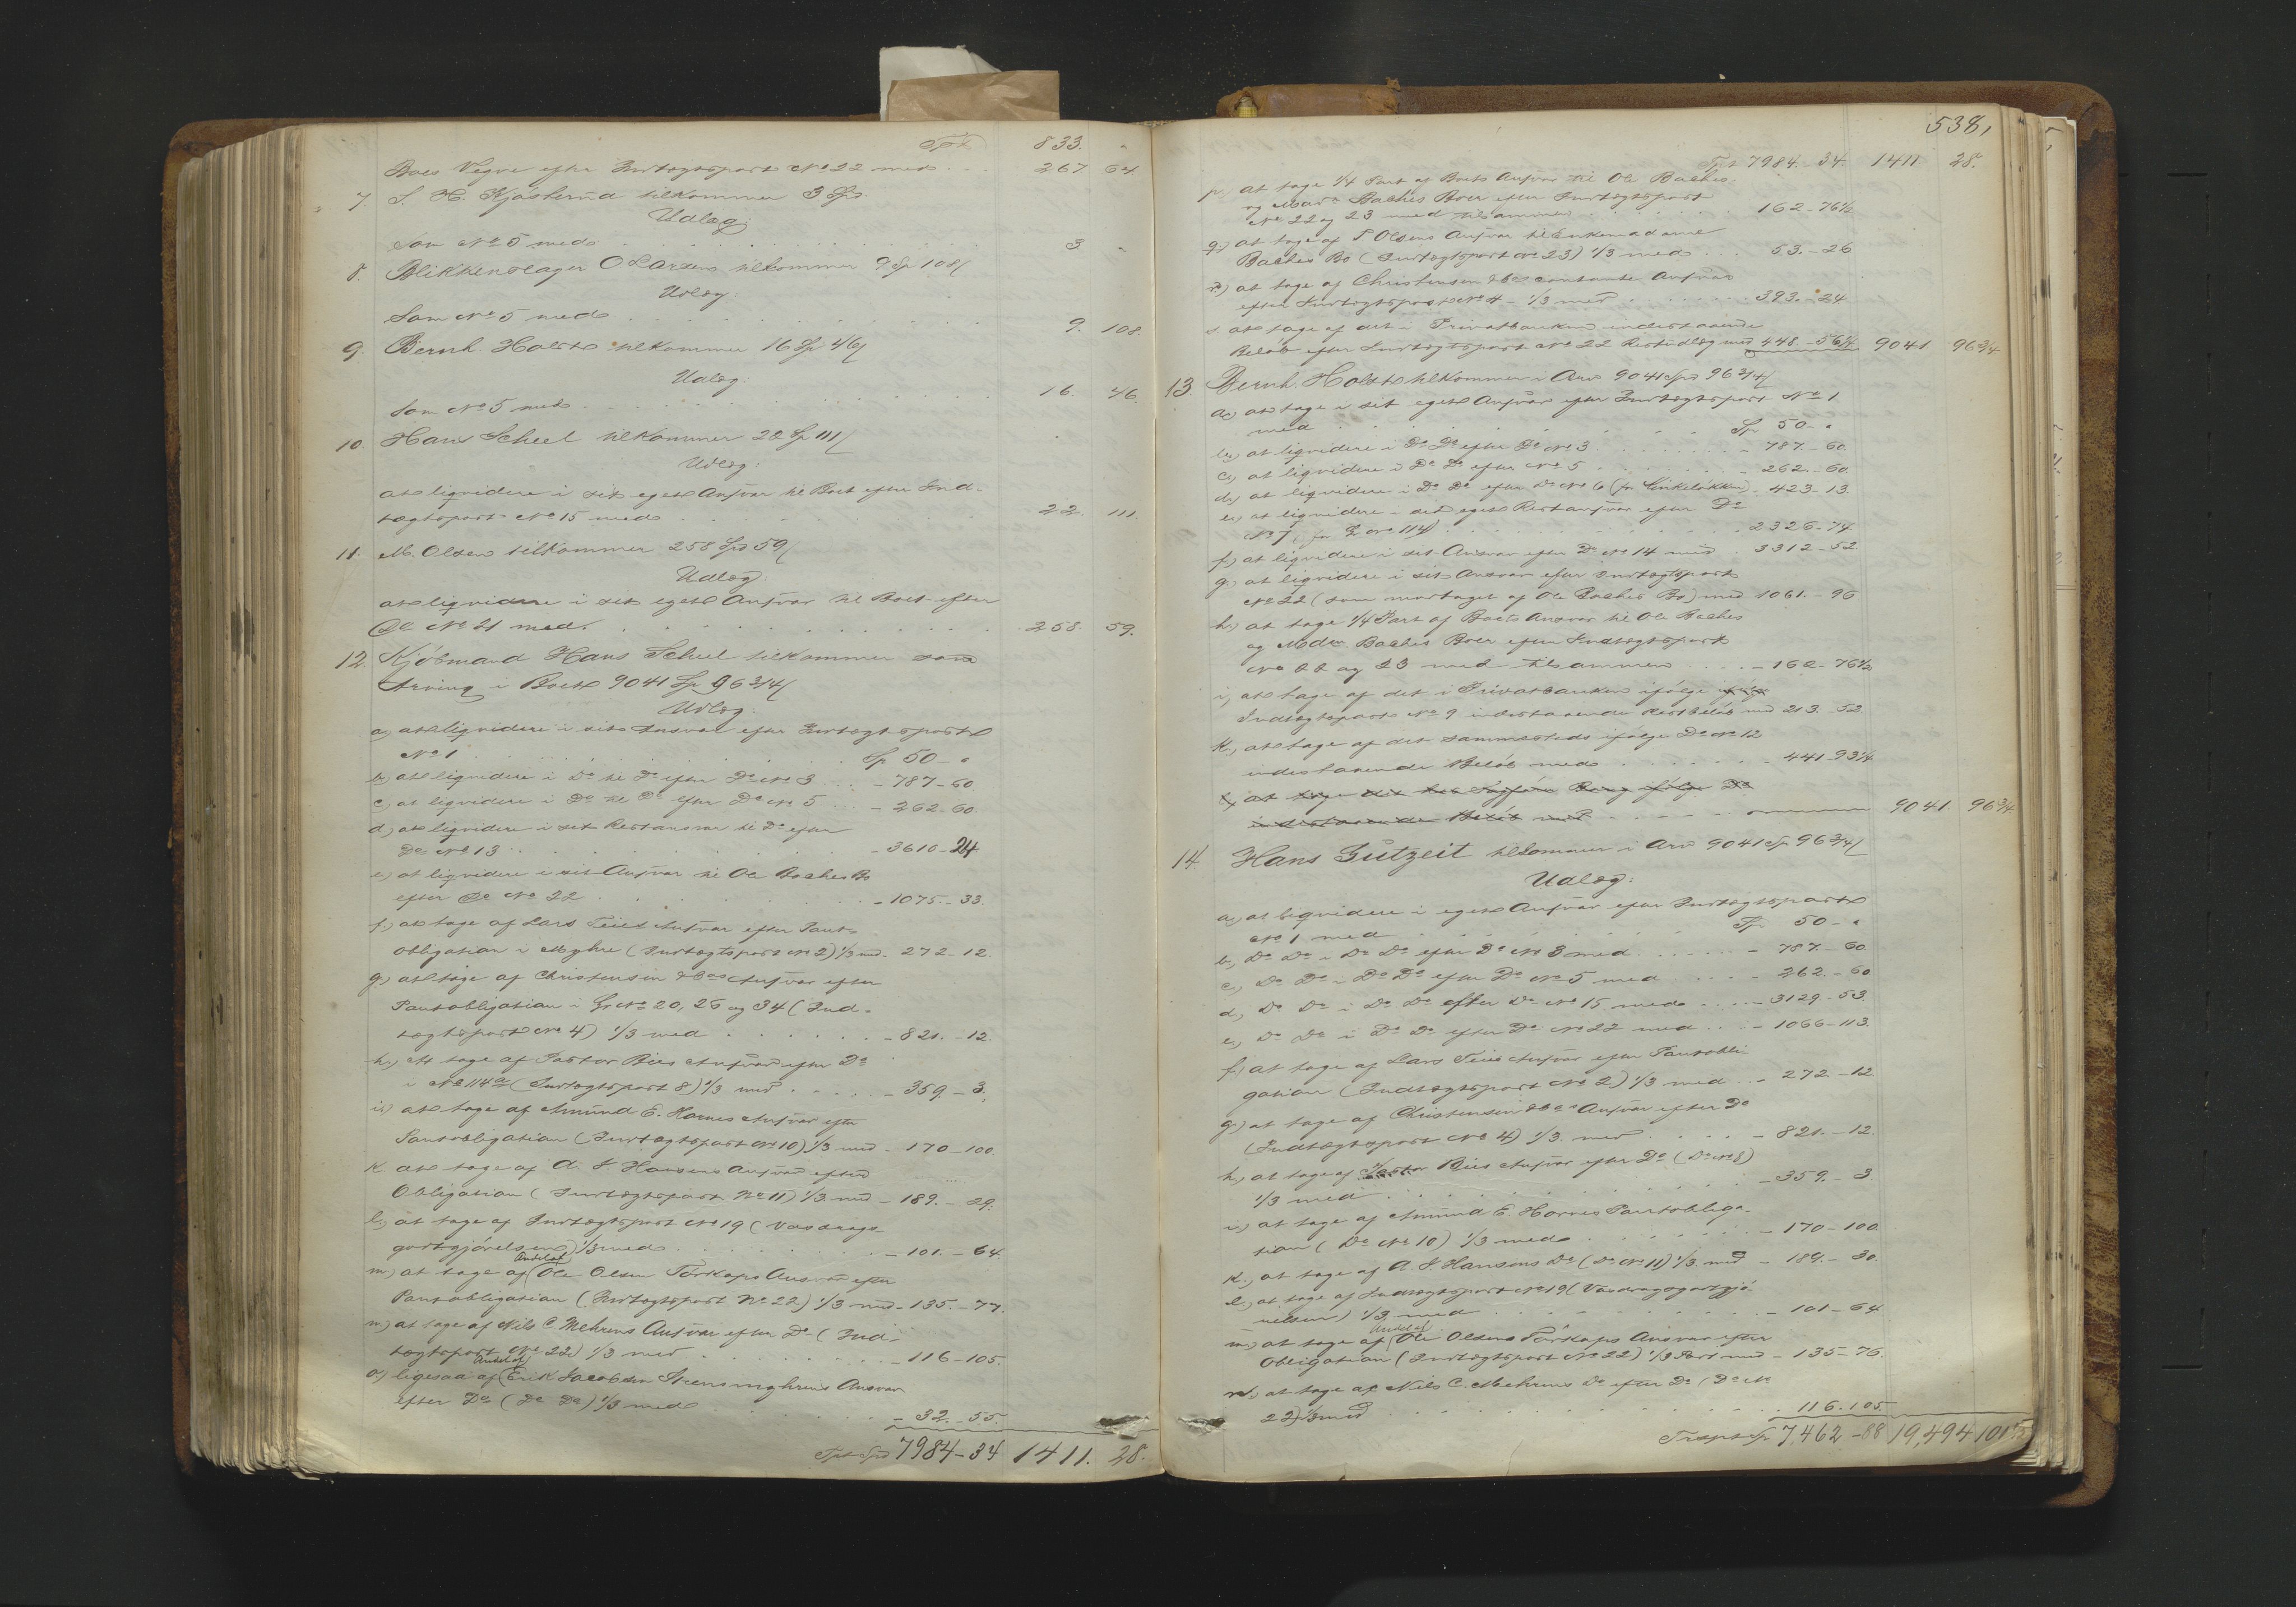 Tpt 833. "
Boes Vegne efter Indtægtspost No 22 med . . . 267 64
7. S. H. Kjøsterud tilkommer 3 Sp.
Udlæg:
Som No 5 med . . . 3 "
8. Blikkenslager O Larsen tilkommer 9 Sp 108 /
Udlæg:
Som No 5 med . . . 9. 108.
9. Bernh. Holst tilkommer 16 Sp 46 /
Udlæg:
Som No 5 med . . . 16. 46.
10. Hans Scheel tilkommer 22 Sp 111 /
Udlæg:
at liqvidere i sit eget Ansvar til Boet efter Ind-
tægtspost No 15 med . . . 22. 111.
11. M. Olsen tilkommer 258 Spd 59 /
Udlæg
at liqvidere i sit eget Ansvar til Boet efter
Do No 21 med . . . 258. 59.
12. Kjøbmand Hans Scheel tilkommer som
Arving i Boet 9041 Sp 96 3/4 /
Udlæg:
a, at liqvidere i sit Ansvar efter Indtægtspost
No 1 . . . Sp 50 - "
b, at liqvidere i Do til Do efter Do No 3 . . . - 787 - 60
c, at liqvidere i Do til Do efter Do No 5 . . . - 262 - 60.
d, at liqvidere i sit Restansvar til Do efter
Do No 13 . . . - 3610 - 24
e, at liqvidere i sit Ansvar til Ole Baches Bo
efter Do No 22 . . . - 1075 - 33.
f, at tage af Lars Teies Ansvar efter Pant-
obligation i Myhre (Indtægtspost No 2) 1/3 med - 272 - 12.
g, at tage af Christensen & Co's Ansvar efter
Pantobligation i Gr No 20, 26 og 34 (Ind-
tægtspost No 4) 1/3 med . . . - 821. - 12.
h, at tage af Pastor Bies Ansvar efter Do
i No 114 a (Indtægtspost 8) 1/3 med . . . - 359. - 3.
i, at tage af Amund E. Hornes Ansvar efter
Pantobligation (Indtægtspost No 10) 1/3 med - 170 - 100.
k. at tage af A. S. Hansens Ansvar efter
Obligation (Indtægtspost No 11) 1/3 med - 189. - 29.
l, at tage af Indtægtspost No 19 (Vasdrags
godtgjørelsen) 1/3 med . . . - 101. - 64.
m, at tage af Andel af Ole Olsen Torkops Ansvar efter
Pantobligation (Indtægtspost No 22) 1/3 med - 135. - 77.
n, at tage af Nils C. Mehrens Ansvar efter Do (Ind-
tægtspost No 22) 1/3 med . . . - 116 - 105.
o, ligesaa af Andel af Erik Jacobsen Steensmyhrens Ansvar
efter Do (Do Do) 1/3 med . . . - 32. - 55.
Tpt Spd 7984 - 34 1411. 28.
538,
Tpt 7984. - 34. 1411. 28.
p, at tage 1/4 Part af Boets Ansvar til Ole Baches
og Mad. Baches Boer efter Indtægtspost
No 22 og 23 med tilsammen . . . 162 - 76 1/2
q, at tage af P. Olsens Ansvar til Enkemadame
Baches Bo (Indtægtspost No 23) 1/3 med . . . 53. - 26
r, at tage af Christensen & Co's contante Ansvar
efter Indtægtspost No 4 - 1/3 med . . . 393. - 24.
s at tage af det i Privatbanken indestaaende
Beløb efter Indtægtspost No 22 Restudlæg med 448. - 56 1/4 9041 96 3/4
13. Bernh. Holst tilkommer i Arv 9041 Spd 96 3/4 /
a, at tage i sit eget Ansvar efter Indtægtspost No 1
med . . . Sp 50 - "
b, at liqvidere i Do Do efter Do No 3 . . . - 787. - 60.
c, at liqvidere i Do Do efter No 5 . . . - 262. - 60.
d, at liqvidere i Do Do efter Do No 6 (for ) - 423 - 13.
e, at liqvidere i sit eget Restansvar efter Do
No 7, for No 114) . . . - 2326 - 74
f, at liqvidere i sit Ansvar efter Do No 14 med - 3312 - 52.
g, at liqvidere i sit Ansvar efter Indtægtspost
No 22 (som modtaget af Ole Baches Bo) med 1061. - 96
h, at tage 1/4 Part af Boets Ansvar til Ole Baches
og Mdm Baches Boer efter Indtægtspost
No 22 og 23 med tilsammen . . . - 162 - 76 1/2
i, at tage af det i Privatbanken ifølge
Indtægtspost No 9 indestaaende Restbeløb med 213. - 52
k, at tage af det sammesteds ifølge Do No 12
indestaaende Beløb med . . . - 441 - 93 1/4
l, at tage ifølge Do
indestaaende Beløb med . . . 9041. 96 3/4
14. Hans Gutzeit tilkommer i Arv 9041 Sp 96 3/4 /
Udlæg:
a, at liqvidere i eget Ansvar efter Indtægtspost
No 1 med . . . Sp 50 - "
b, Do Do i Do Do efter Do No 3 med . . . - 787 - 60
c, Do Do i Do Do efter Do No 5 med . . . - 262. - 60
d, Do Do i Do Do efter Do No 15 med . . . - 3129 - 53.
e, Do Do i Do Do efter Do No 22 med . . . - 1066 - 113.
f, at tage af Lars Teies Ansvar efter Pantobli-
gation (Indtægtspost No 2) 1/3 med . . . - 272 - 12
g, at tage af Christensen & Co's Ansvar efter Do
(Indtægtspost No 4) 1/3 med . . . - 821. - 12.
h, at tage af Pastor Bies Ansvar efter Do (Do No 8)
1/3 med . . . - 359. - 3
i, at tage af Amund E. Hornes Pantobliga-
tion (Do No 10) 1/3 med . . . - 170 - 100
k, at tage af A. S. Hansens Do (Do No 11) 1/3 med - 189. - 30.
l, at tage af Indtægtspost No 19 (Vasdragsgodtgjø-
relsen) 1/3 med . . . - 101 - 64
m, at tage af Andel af Ole Olsens Torkops Ansvar efter
Obligation (Indtægtspost No 22) 1/3 Part med - 135 - 76.
n, at tage af Nils C. Mehrens Do efter Do (Do No
22) 1/3 med . . . 116. 105.
Transpt Sp 7,462 - 88 19,494 101 1/2